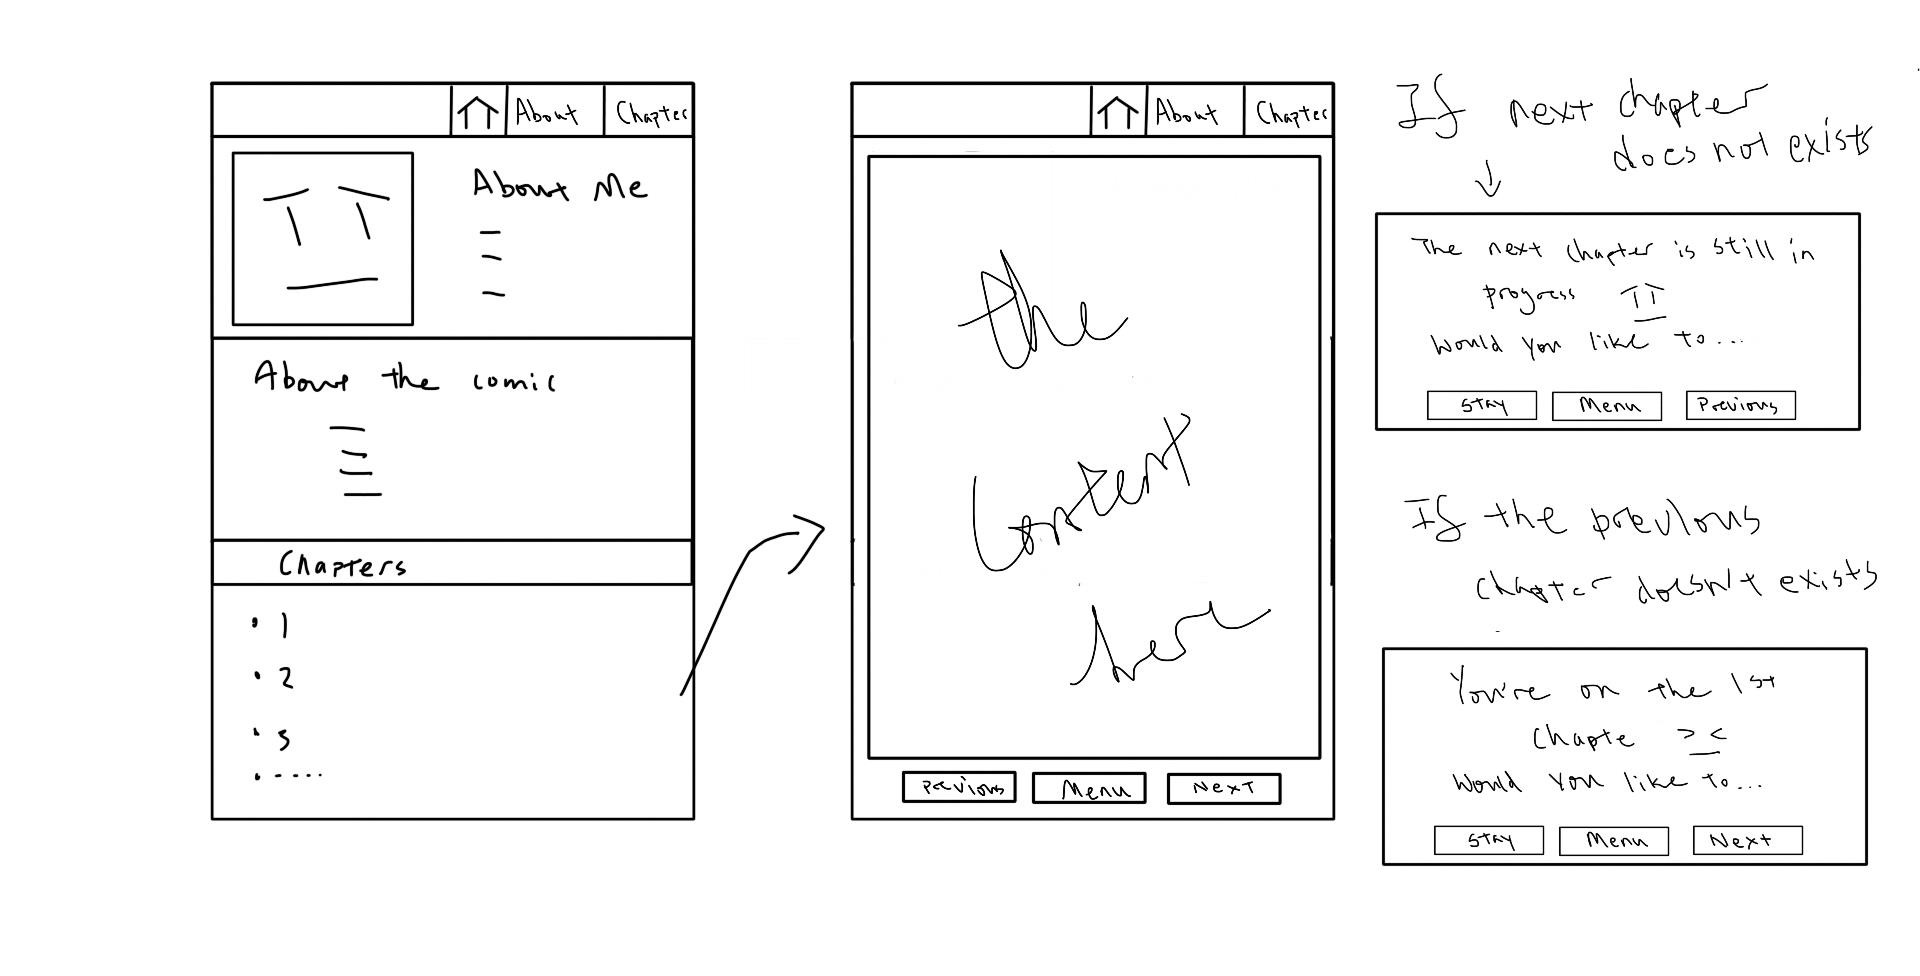 About
Chapter
About Me
About the comic
Chapters
1
2
3
.....
About
Chapter
the
Content
here
Previous
Menu
Next
If next chapter
does not exists
The next chapter is still in
progress
Would you like to...
STAY
Menu
Previous
If the previous
chapter doesn't exists
You're on the 1st
Chapte > <
Would You like to...
STAY
Menu
Next